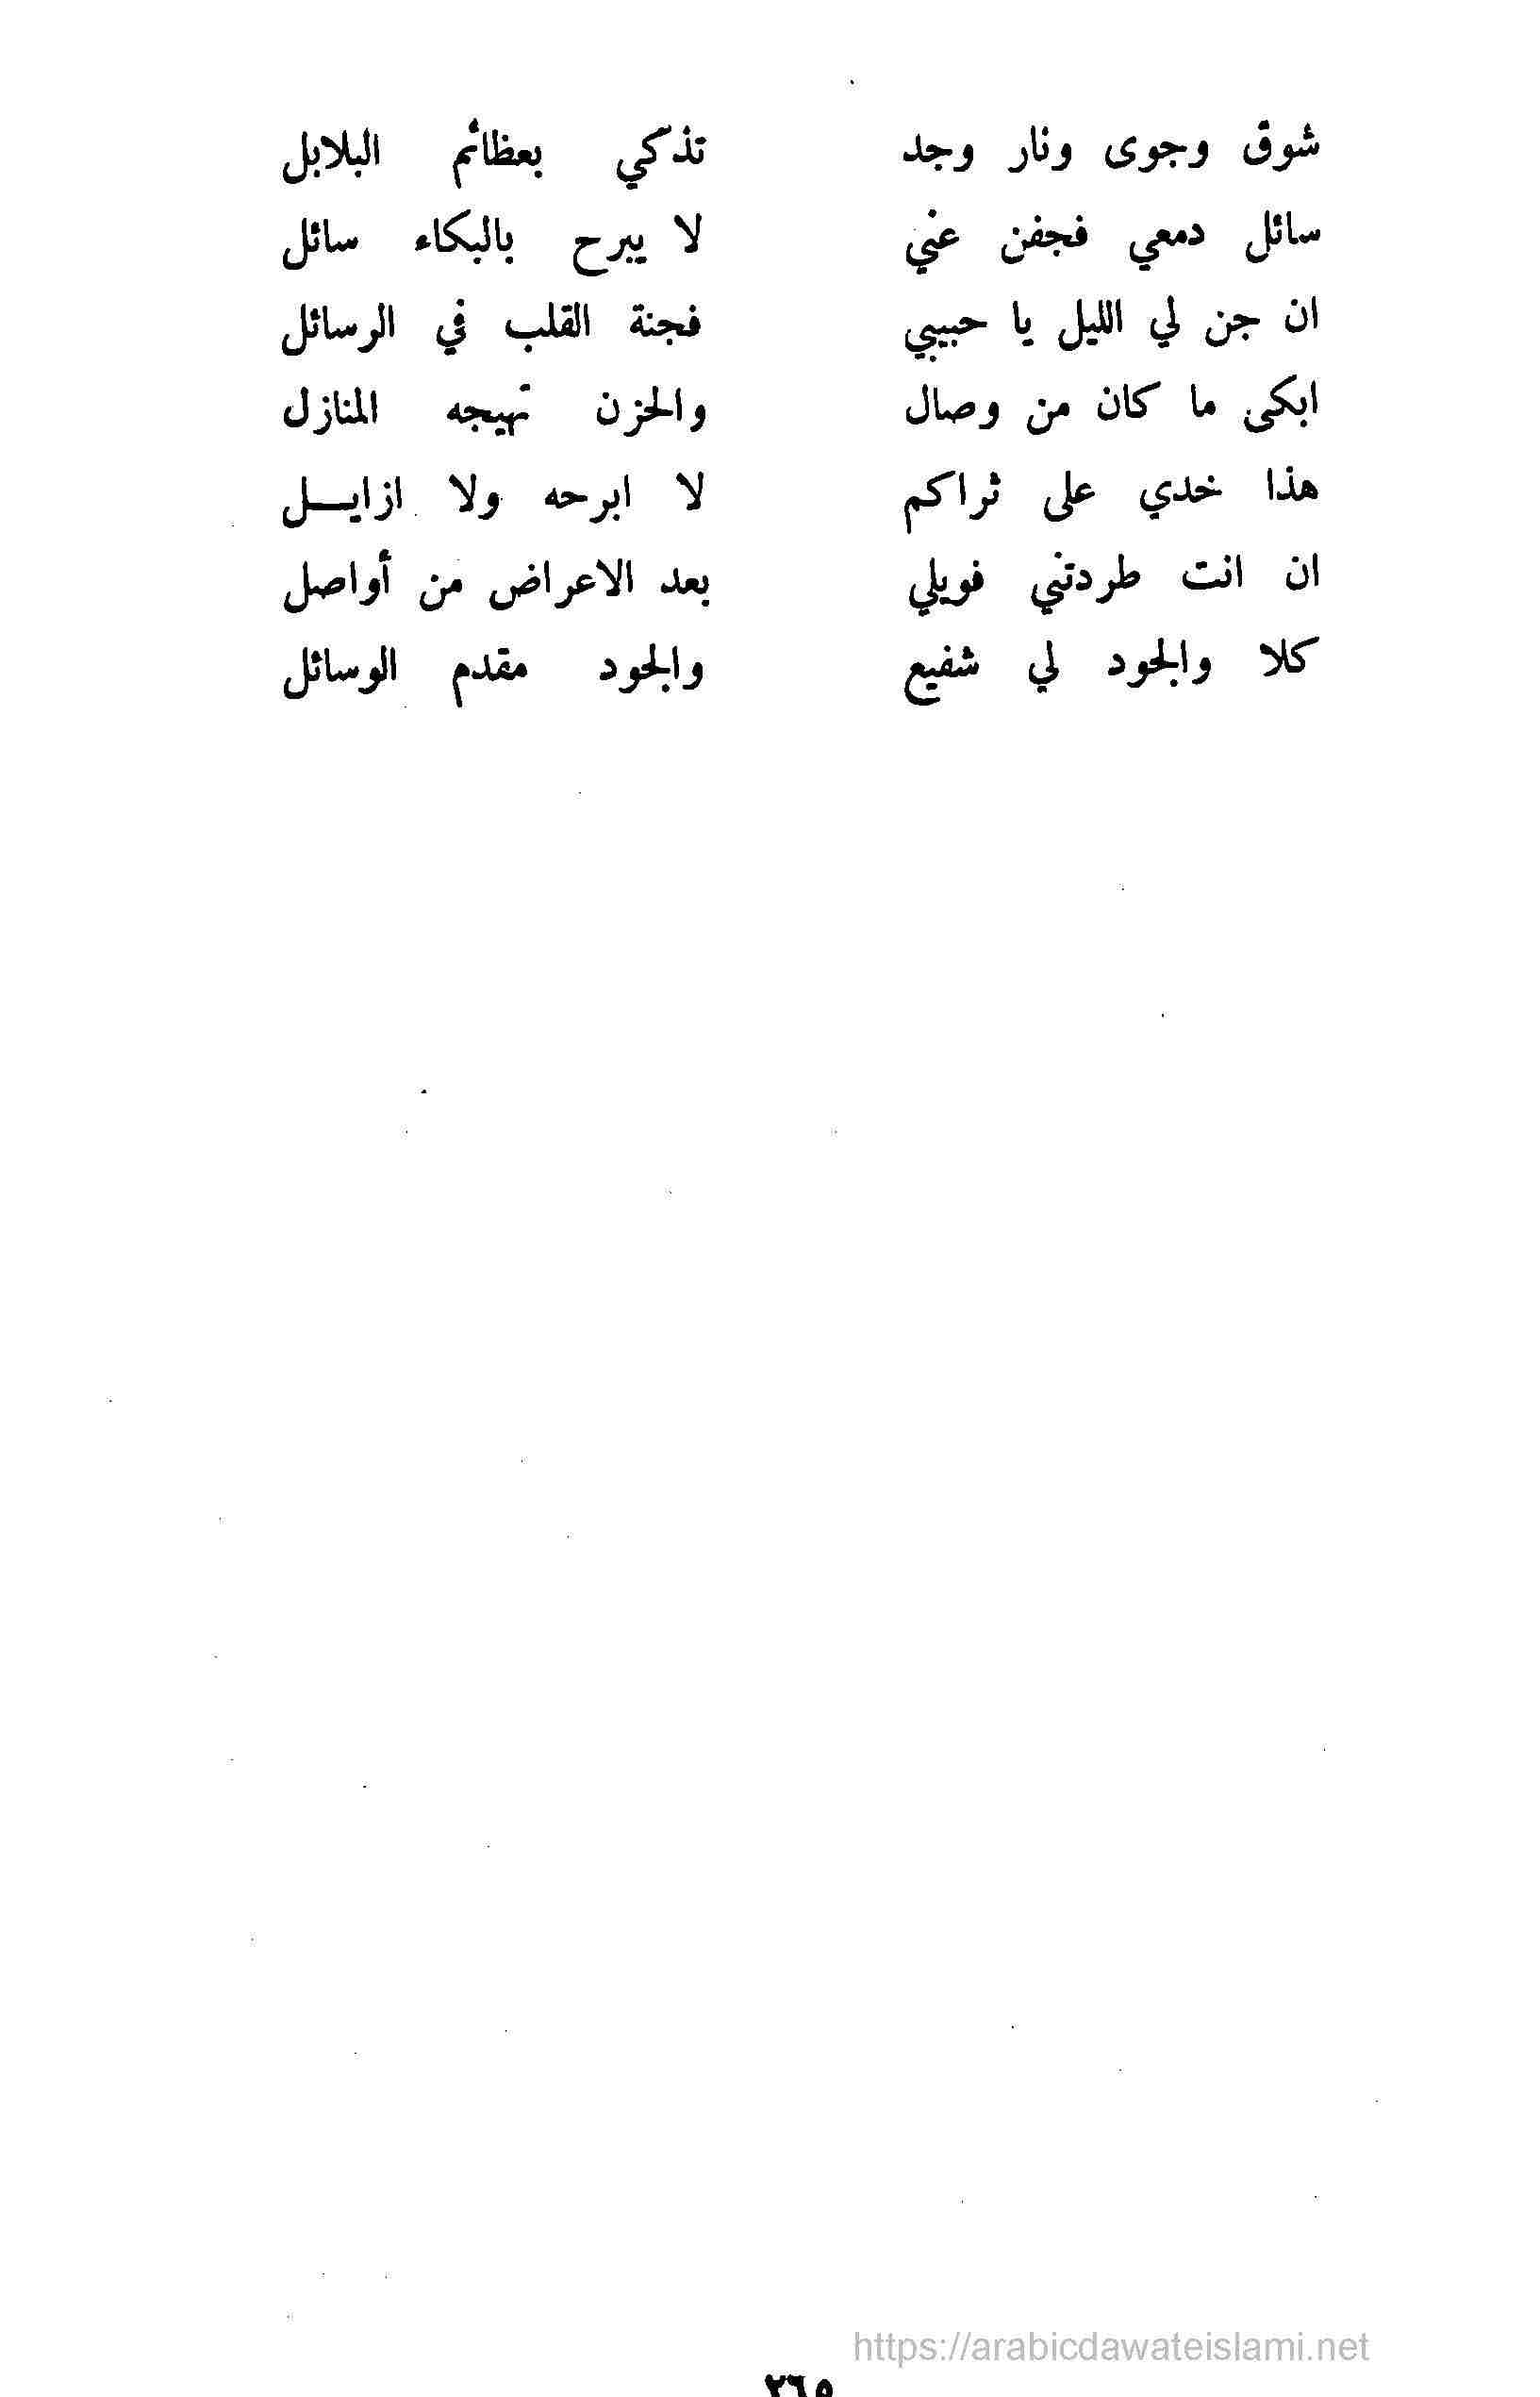 شوق وجوى ونار وجد تذكي بعظائم البلابل
سائل دمعي فجفن عني لا يبرح بالبكاء سائل
ان جن لي الليل يا حبيبي فجنة القلب في الرسائل
ابكى ما كان من وصال والحزن تهيجه المنازل
هذا خدي على ثراكم لا ابرحه ولا ازايــل
ان انت طردتني فويلي بعد الاعراض من أواصل
كلا والجود لي شفيع والجود مقدم الوسائل
https://arabicdawateislami.net
٢٦٥